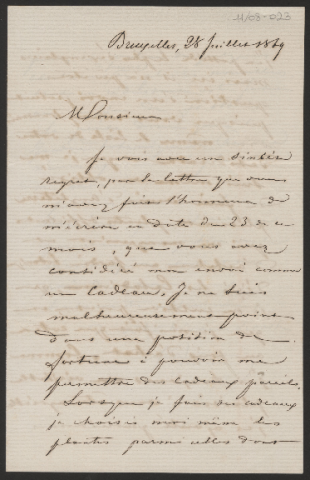 11/03-023
Bruxelles, 28 Juillet 1869
Monsieur
Je vois avec un sincère
regret, par la lettre que vous
m'avez fait l'honneur de
m'écrire en date du 23 de ce
mois, que vous avez
considéré mon envoi comme
un cadeau. Je ne suis
malheureusement point
dans une position de
fortune à pouvoir me
permettre des cadeaux pareils.
Lorsque je fais des cadeaux
je choisis moi même les
plantes parmi celles dont